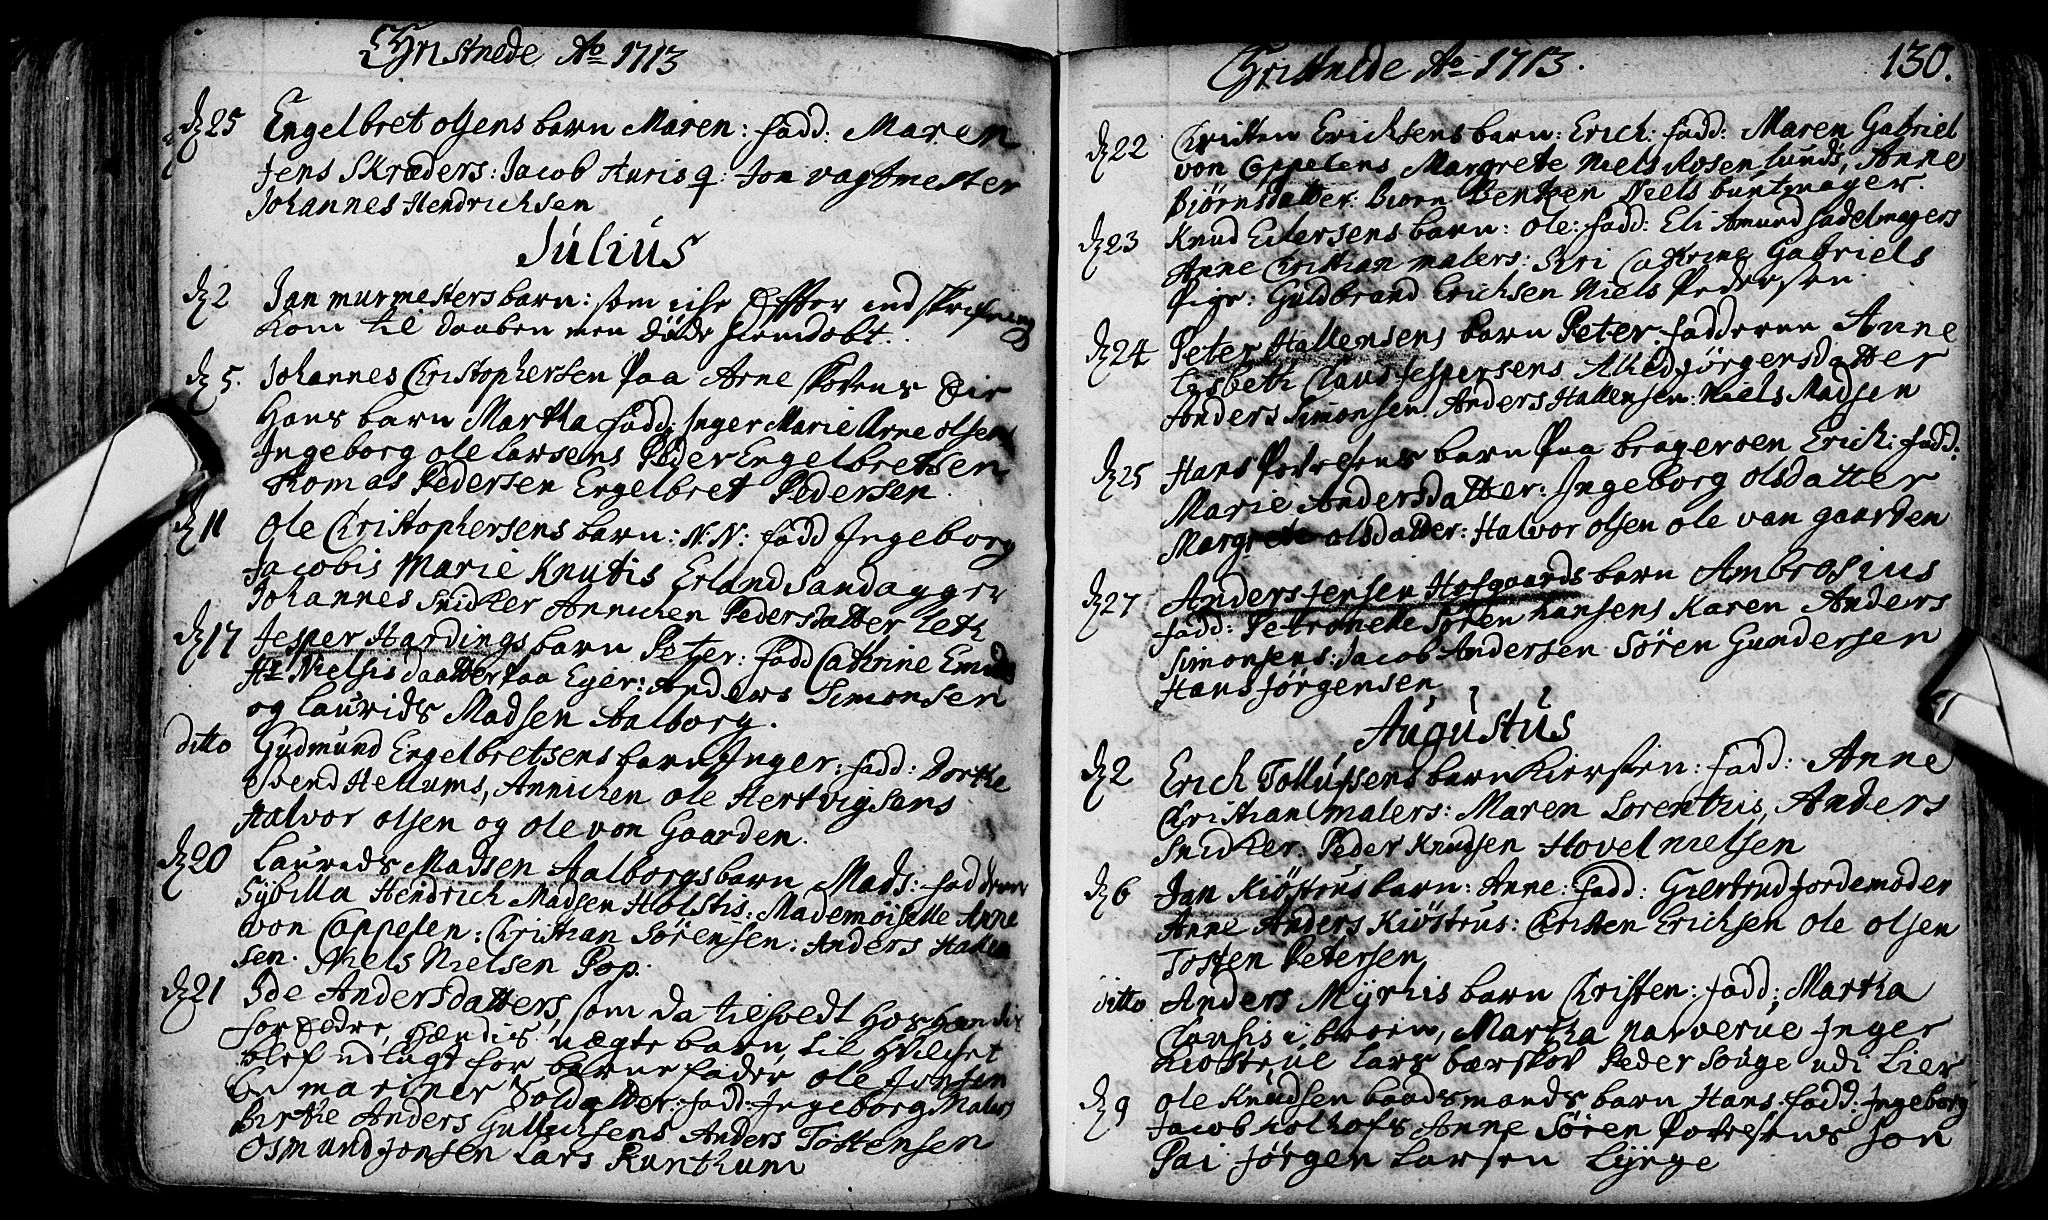 Christnede Ao 1713
d 25 Engelbret olsens barn Maren: fadd: Maren
Jens Skræders: Jacob Auris q: Jon vagtmester
Johannes Hendrichsen
Julius
d 2 Jan murmesters barn: som icke Effter indskrifning
kom til daaben men døde hiemdøbt.
d 5. Johannes Christophersen paa Arne Skovens Eie
Hans barn Martha fadd: Inger Marie Arne olsens
Ingeborg ole Larsens Peder Engelbretsen
Thomas Pedersen Engelbret Pedersen
d 11 Ole Christophersens barn: N:N: fadd Ingeborg
Jacobis Marie Knutis Erland Sandagger
Johannes Snidker Annichen Pedersdatter Leth
d 17 Jesper Hardings barn Peter: fadd Cathrine
Hr Nielsis daatter paa Eger: Anders Simonsen
og Laurids Madsen Aalborg.
ditto Gudmund Engelbretsens barn Inger: fadd: Dorthe
Svend Hellums, Annichen ole Hertvigsens
Halvor olsen og ole von Gaarden.
d 20 Laurids Madsen Aalborgs barn Mads: fadderne
Sybilla Hendrich Madsen Holstis: Mademoiselle Anne
von Cappelen: Christian Sørensen: Anders Hallen
sen. Niels Nielsen Pop.
d 21 Ide Andersdatters, som da tilholdt hos
forældre, Hændis uægte barn, til hvilchet
blef udlagt for barne fader ole Jonsen
En mariner Soldatter: fadd: Ingeborg Malers
Birthe Anders Gulluchsens Anders Tostensen
Osmund Jonsen Lars Runthum
Christnede Ao 1713. 130.
d 22 Christen Erichsens barn: Erich: fadd: Maren Gabriel
von Cappelens Margrete Niels Rosenlunds, Anne
Biørnsdatter: Biørn Bentsen Niels buntmager.
d 23 Knud Eilersens barn: Ole: fadd: Eli Amund sadelmagers
Anne Christian malers: Siri Cathrine Gabriels
Pige: Guldbrand Erichsen Niels Pedersen
d 24 Peter Hallensens barn Peter: fadderne Anne
Lisbeth Claus Jespersens Alhed Jørgensdatter
Anders Simonsen Anders Hallensen: Niels Madsen
d 25 Hans Povelsens barn paa bragernen Erich: fadd:
Marie Andersdatter: Ingeborg olsdatter
Margrete olsdatter: Halvor olsen ole van gaarden
d 27 Anders Jensen Hofgaards barn Ambrosius
fadd: Petronelle Søren Hansens Karen Anders
Simonsens: Jacob Andersen Søren Gundersen
Hans Jørgensen
Augustus
d 2 Erich Tollufsens barn Kiersten: fadd: Anne
Christian malers: Maren Lorentzis, Anders
Snidker: Peder Knudsen Hovel nielsen
d 6 Jan Kiøstrus barn: Anne: fadd: Giertrud Jordemoder
Anne Anders Kiøstrus: Christen Erichsen ole olsen
Tosten Petersen
ditto Anders Myrhis barn Christen: fadd: Martha
i Martha Narverue Inger
Kiostrue Lars bærskov Peder Souge udi Lier
d 9 Ole Knudsen baadsmands barn Hans: fadd: Ingeborg
Jacob Anne Søren Povelsens Jon
Pai Jørgen Larsen Lynge